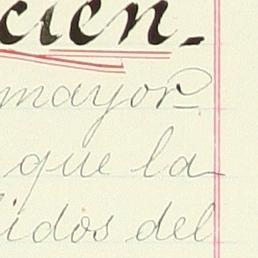 cien.
mayor
que la
idos del